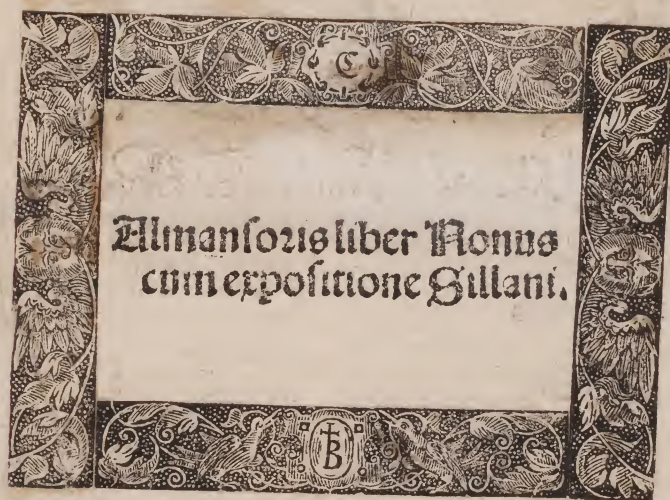 C
Almansoris liber Nonus
cum expositione Sillani.
B